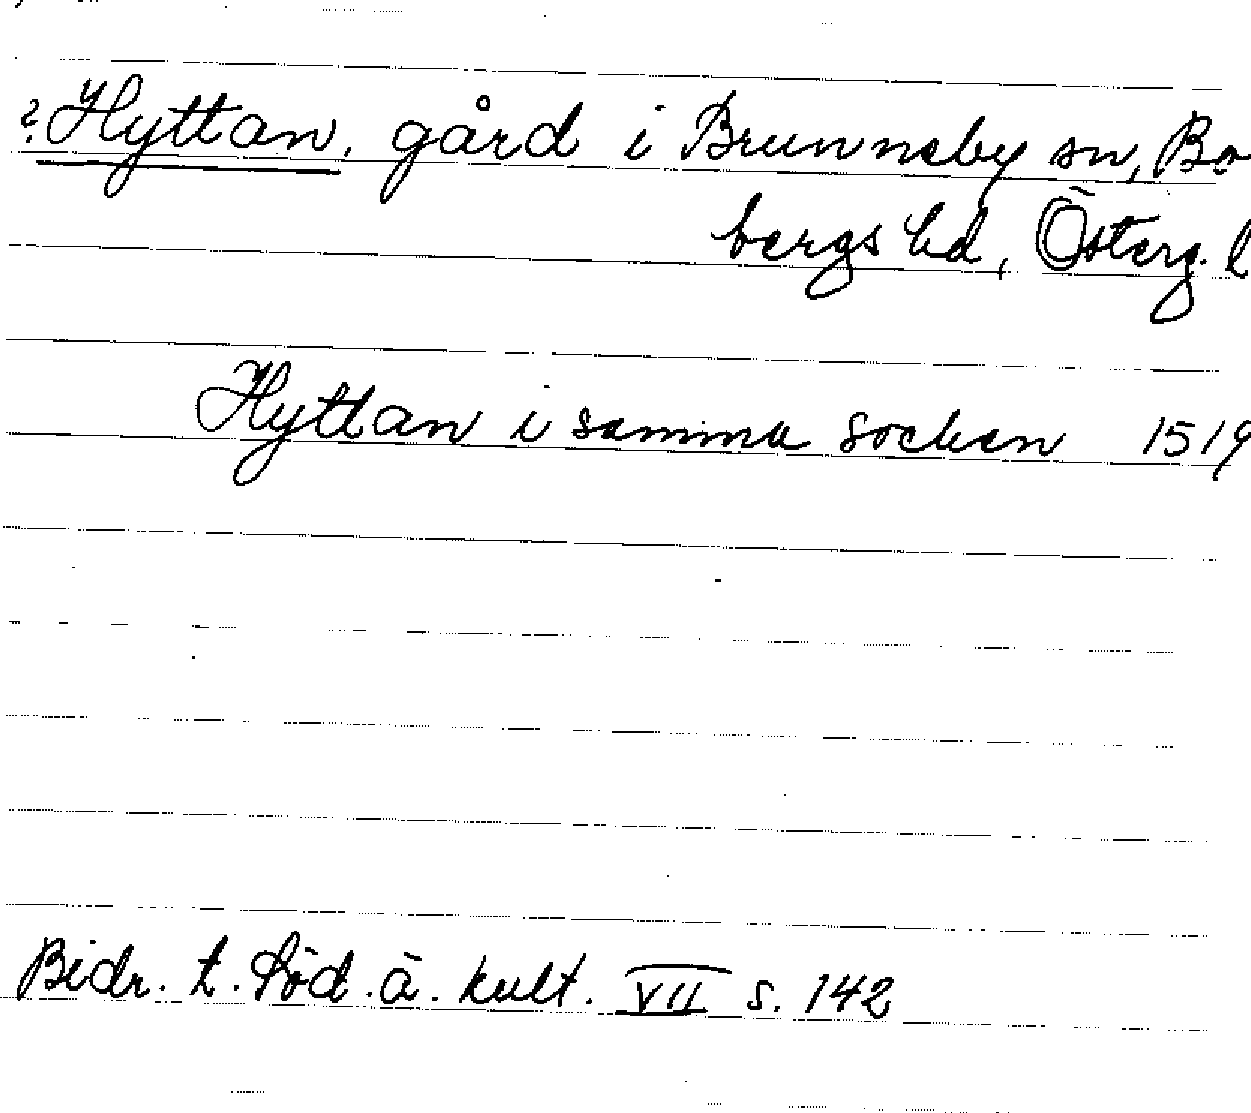 ? Hyttan, gård i Brunnsby sn, Bo
bergs hd, Österg. l
Hyttan i samma socken 1519
Bidr. t. Söd. ä. kult. VII s. 142